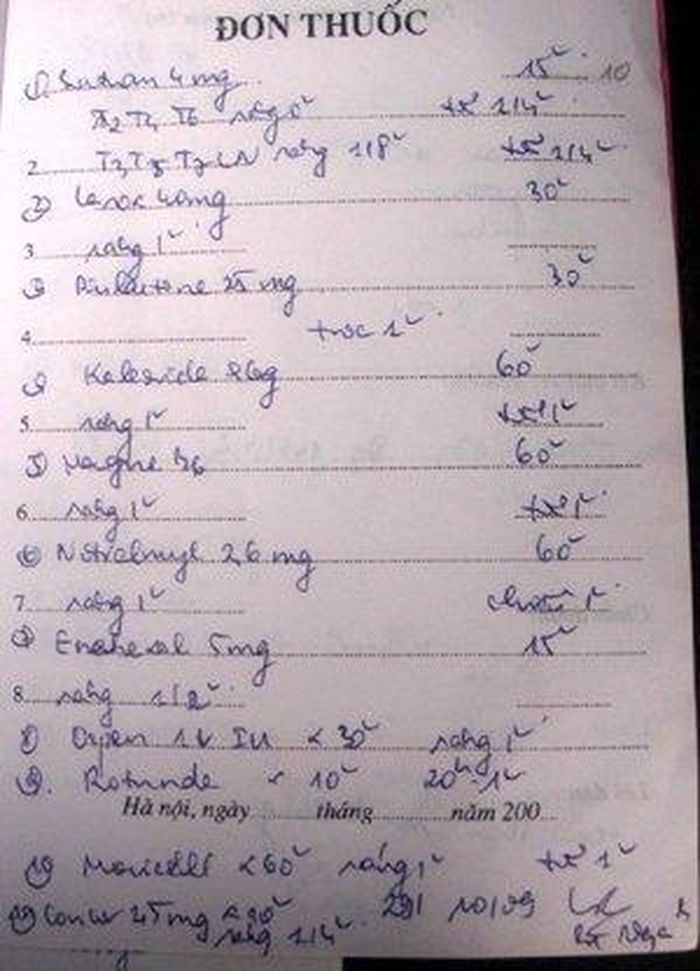 ĐƠN THUỐC
① 4 mg 15ᵛ 10
T2 T4 T6 sáng 0ᵛ tối 1/4ᵛ
2 T3 T5 T7 CN sáng 1/8ᵛ tối 1/4ᵛ
② Lasix 40mg 30ᵛ
3 sáng 1ᵛ
③ 25 mg 30ᵛ
4 trưa 1ᵛ
④ Kaleoride 60ᵛ
5 sáng 1ᵛ tối 1ᵛ
⑤ Magne B6 60ᵛ
6 sáng 1ᵛ tối 1ᵛ
⑥ Nitralmyl 2,6 mg 60ᵛ
7 sáng 1ᵛ chiều 1ᵛ
⑦ Enahexal 5mg 15ᵛ
8 sáng 1/2ᵛ
⑧ IU x 30ᵛ sáng 1ᵛ
⑨ Rotunda x 10ᵛ 20h 1ᵛ
Hà nội, ngày tháng năm 200
⑩ x 60ᵛ sáng 1ᵛ tối 1ᵛ
⑪ Concor mg sáng 1/4ᵛ 29/10/09
BS Nga